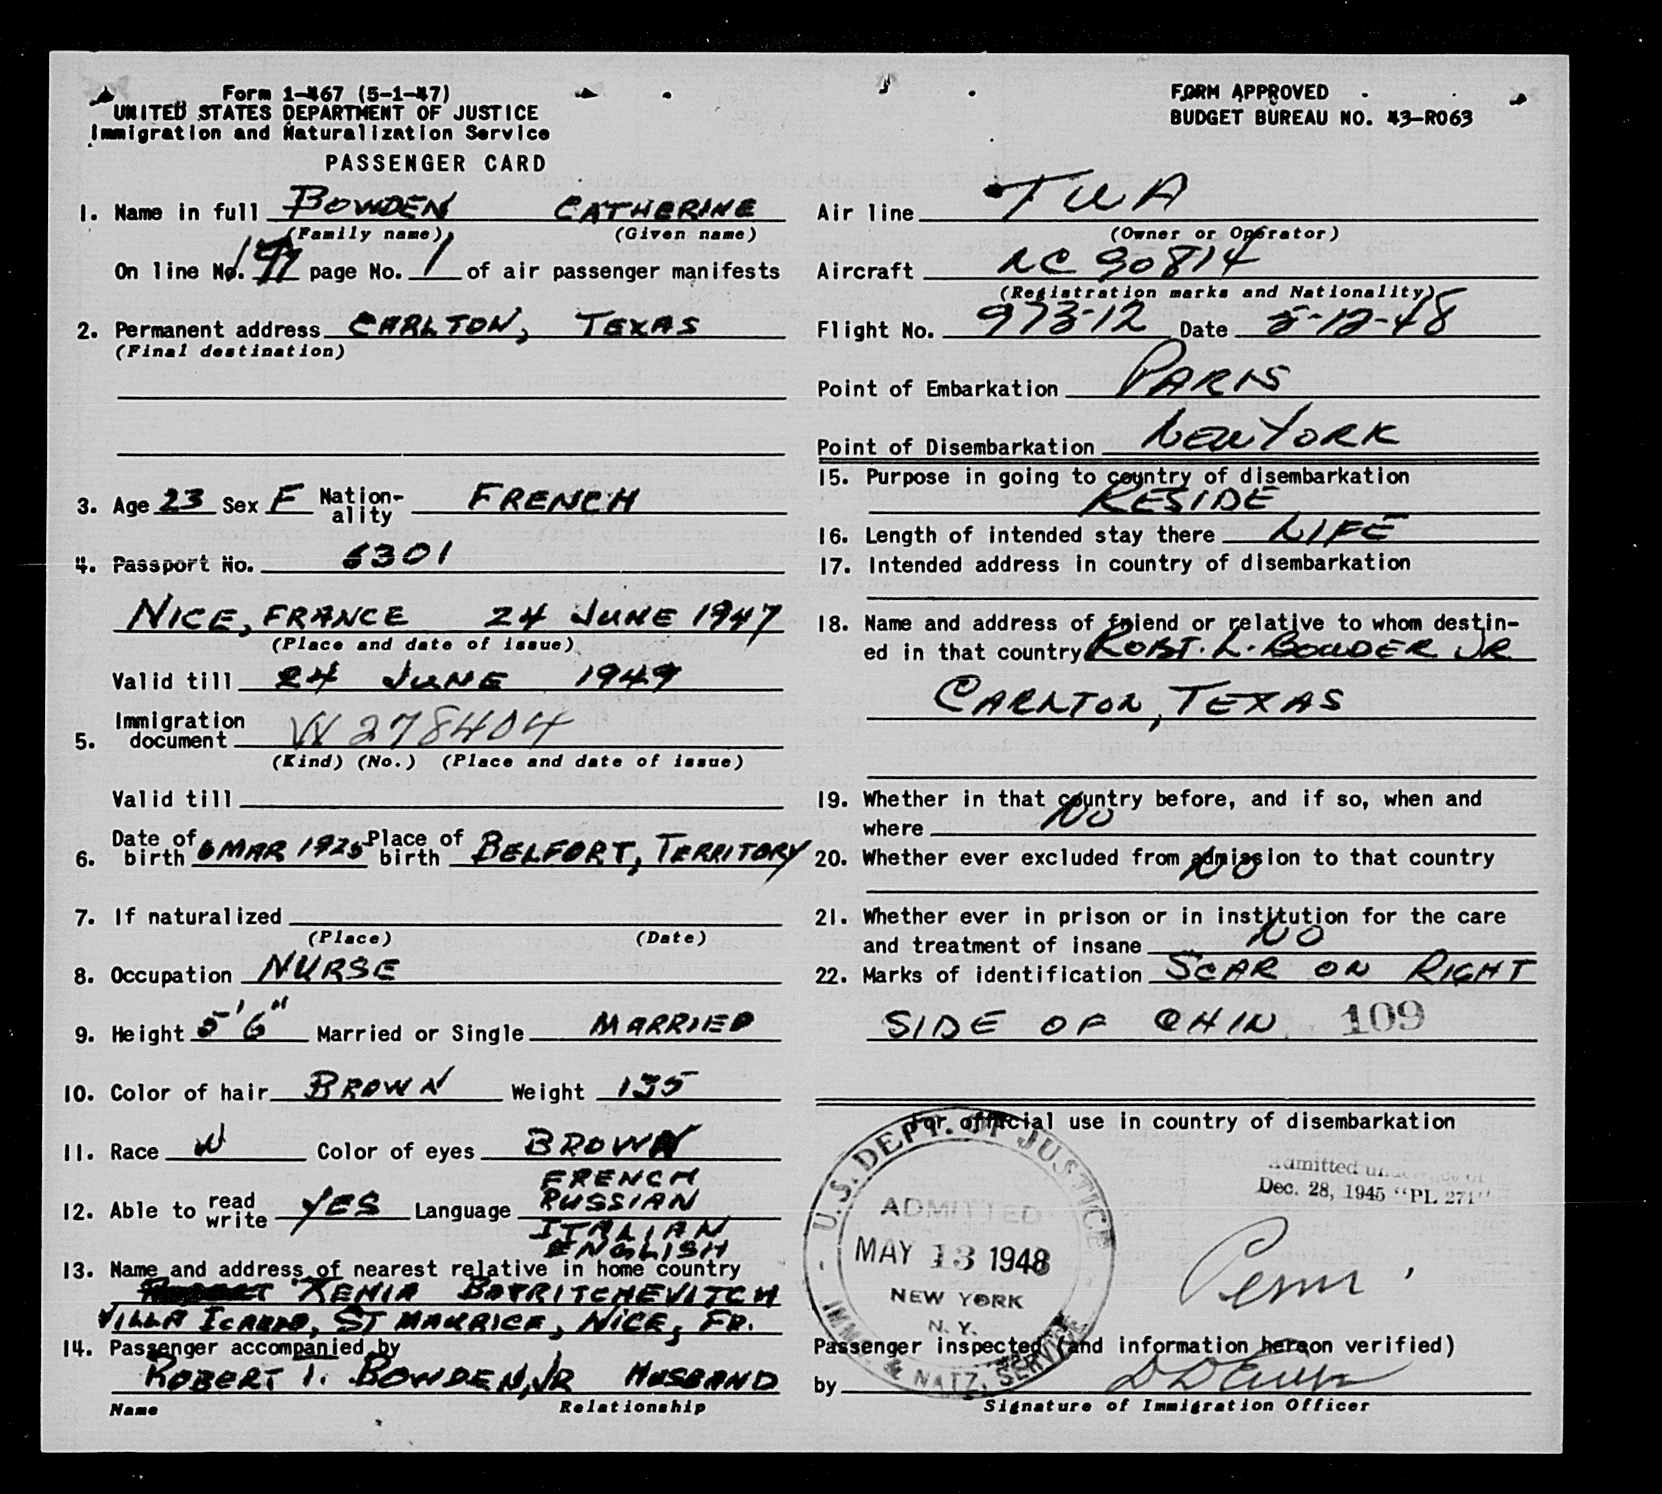 Form 1-467 (5-1-47)
UNITED STATES DEPARTMENT OF JUSTICE
Immigration and Naturalization Service
PASSENGER CARD
FORM APPROVED
BUDGET BUREAU NO. 43-R063
1. Name in full BOWDEN CATHERINE
(Family name) (Given name)
On line No. page No. 1 of air passenger manifests
2. Permanent address CARLTON, TEXAS
(Final destination)
3. Age 23 Sex F Nation-ality FRENCH
4. Passport No. 6301
NICE, FRANCE 24 JUNE 1947
(Place and date of issue)
Valid till 24 JUNE 1949
5. Immigration document W 278404
(Kind) (No.) (Place and date of issue)
Valid till
6. Date of birth 6 MAR 1925 Place of birth BELFORT, TERRITORY
7. If naturalized
(Place) (Date)
8. Occupation NURSE
9. Height 5'6" Married or Single MARRIED
10. Color of hair BROWN Weight 135
11. Race W Color of eyes BROWN
12. Able to read write YES Language FRENCH
RUSSIAN
ITALIAN
ENGLISH
13. Name and address of nearest relative in home country
XENIA BOTRITCHEVITCH
VILLA ICARDO, ST MAURICE, NICE, FR.
14. Passenger accompanied by
ROBERT BOWDEN, JR HUSBAND
Name Relationship
Air line TWA
(Owner or Operator)
Aircraft NC 90814
(Registration marks and Nationality)
Flight No. 973-12 Date 5-12-48
Point of Embarkation PARIS
Point of Disembarkation NEW YORK
15. Purpose in going to country of disembarkation
RESIDE
16. Length of intended stay there LIFE
17. Intended address in country of disembarkation
18. Name and address of friend or relative to whom destin-
ed in that country ROBT. L. BOWDEN JR
CARLTON, TEXAS
19. Whether in that country before, and if so, when and
where NO
20. Whether ever excluded from admission to that country
NO
21. Whether ever in prison or in institution for the care
and treatment of insane NO
22. Marks of identification SCAR ON RIGHT
SIDE OF CHIN 109
For official use in country of disembarkation
U.S. DEPT. OF JUSTICE
ADMITTED
MAY 13 1948
NEW YORK
N. Y.
IMM. & NATZ. SERVICE
Admitted
Dec. 28, 1945 "PL 271"
Passenger inspected (and information hereon verified)
by
Signature of Immigration Officer